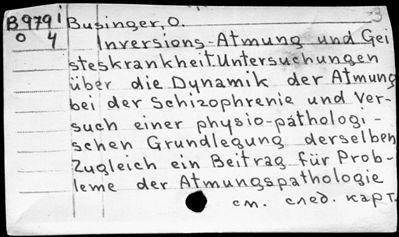 B 979 i Businger, O.
0 4 Inversions-Atmung und Gei
steskrankheit. Untersuchungen
über die Dynamik der Atmung
bei der Schizophrenie und Ver-
such einer physio-pathologi-
schen Grundlegung derselben
Zugleich ein Beitrag für Prob-
leme der Atmungspathologie
см. след. карт.